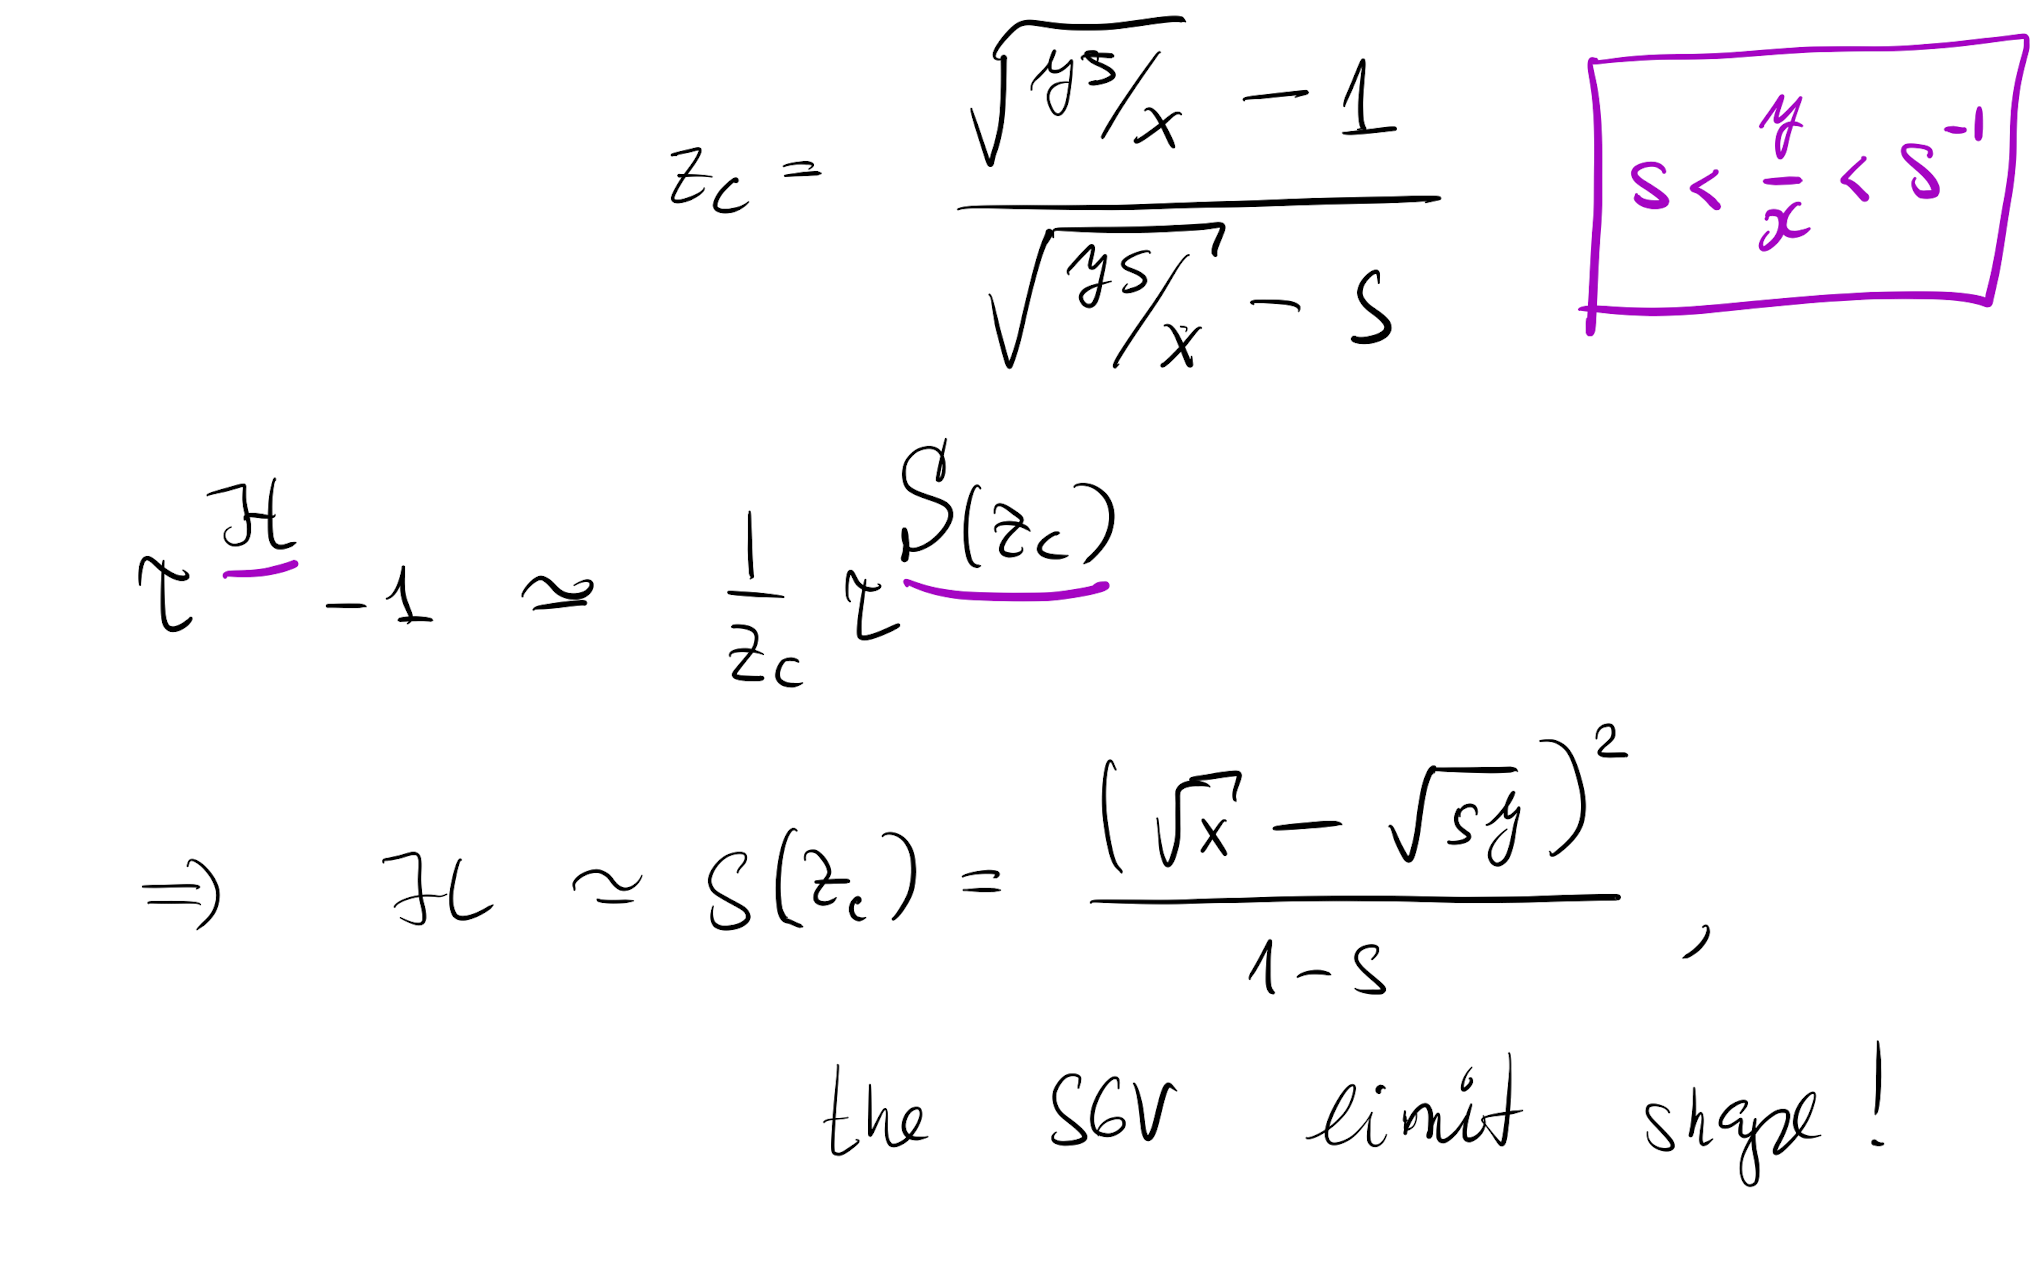 z_c = (√(ys/x) − 1) / (√(ys/x) − s)
s < y/x < s^{-1}
τ^ℋ − 1 ≃ 1/z_c τ^{S(z_c)}
⇒ ℋ ≃ S(z_c) = (√x − √(sy))^2 / (1−s) ,
the S6V limit shape!